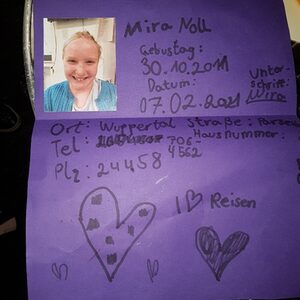 Mira Noll
Gebustag:
30.10.2011
Datum:
07.02.2021
Unter-
schrift:
Mira
Ort: Wuppertal Straße:
Tel: 706- Hausnummer:
4562
Plz: 24458
I ♡ Reisen